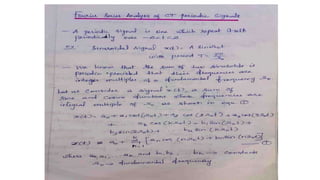 Fourier Series Analysis of CT periodic Signals
- A periodic signal is one which repeat itself
periodically over -∞<t<∞
EX. Sinusoidal signal x(t) = A sinΩ₀t
with period T =
- We know that the sum of two sinusoids is
periodic provided that their frequencies are
integer multiples of a fundamental frequency Ω₀
Let us Consider a signal x(t), a sum of
Sine and Cosine functions whose frequencies are
integral multiple of Ω₀ as shown in eqn ①
x(t) = a₀ + a₁ cos(Ω₀t) + a₂ cos(2Ω₀t) + a₃ cos(3Ω₀t)
+ aₖ cos(kΩ₀t) + b₁ sin(Ω₀t) +
b₂ sin(2Ω₀t) + bₖ sin(kΩ₀t)
x(t) = a₀ + Σ [aₙ cos(nΩ₀t) + bₙ sin(nΩ₀t)] ①
where a₀, a₁ .. aₖ and b₁, b₂ .. bₖ → constants
Ω₀ → fundamental frequency